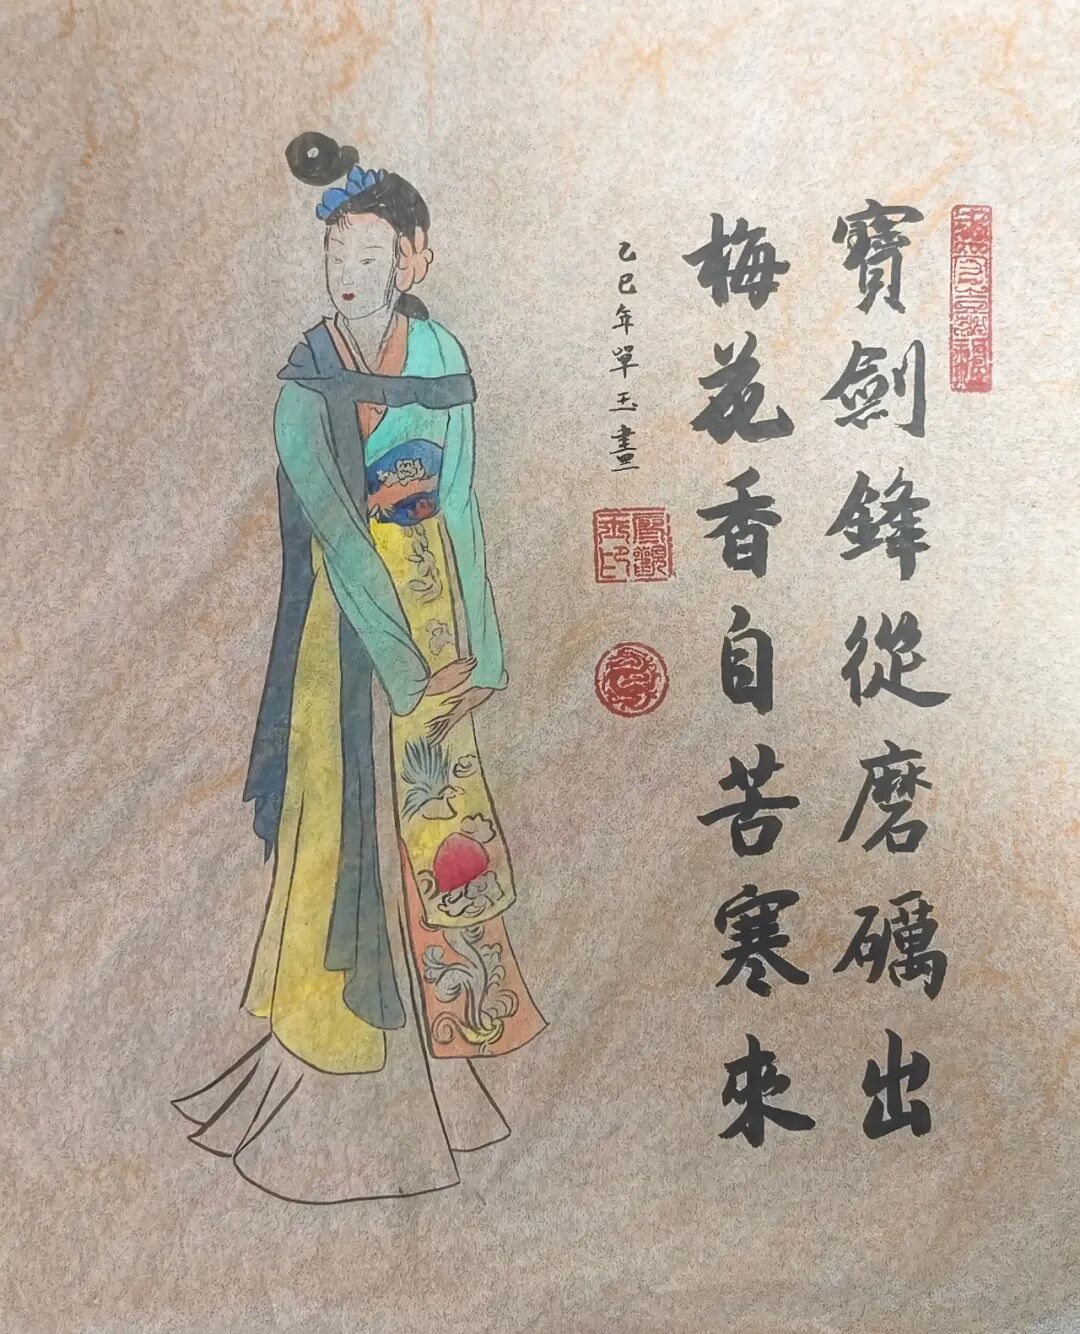 寶劍鋒從磨礪出
梅花香自苦寒來
乙巳年單玉畫